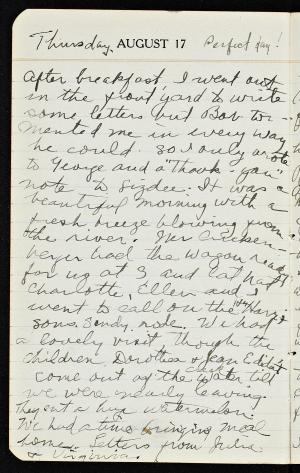 Thursday, AUGUST 17 Perfect day!
After breakfast, I went out
in the front yard to write
some letters but Bob tor-
mented me in every way
he could. So I only wrote
to George and a "Thank-you"
note to Sizdee. It was a
beautiful morning with a
fresh breeze blowing from
the river. Mr
had the wagon ready
for us at 3 and
Charlotte, Ellen and I
went to call on the
sons. Sandy, rode. We had
a lovely visit though the
children, Dorothea & Jean
come out of the water till
we were nearly leaving.
They cut a huge watermelon.
We had a time meal
home. Letters from Julia
& Virginia.